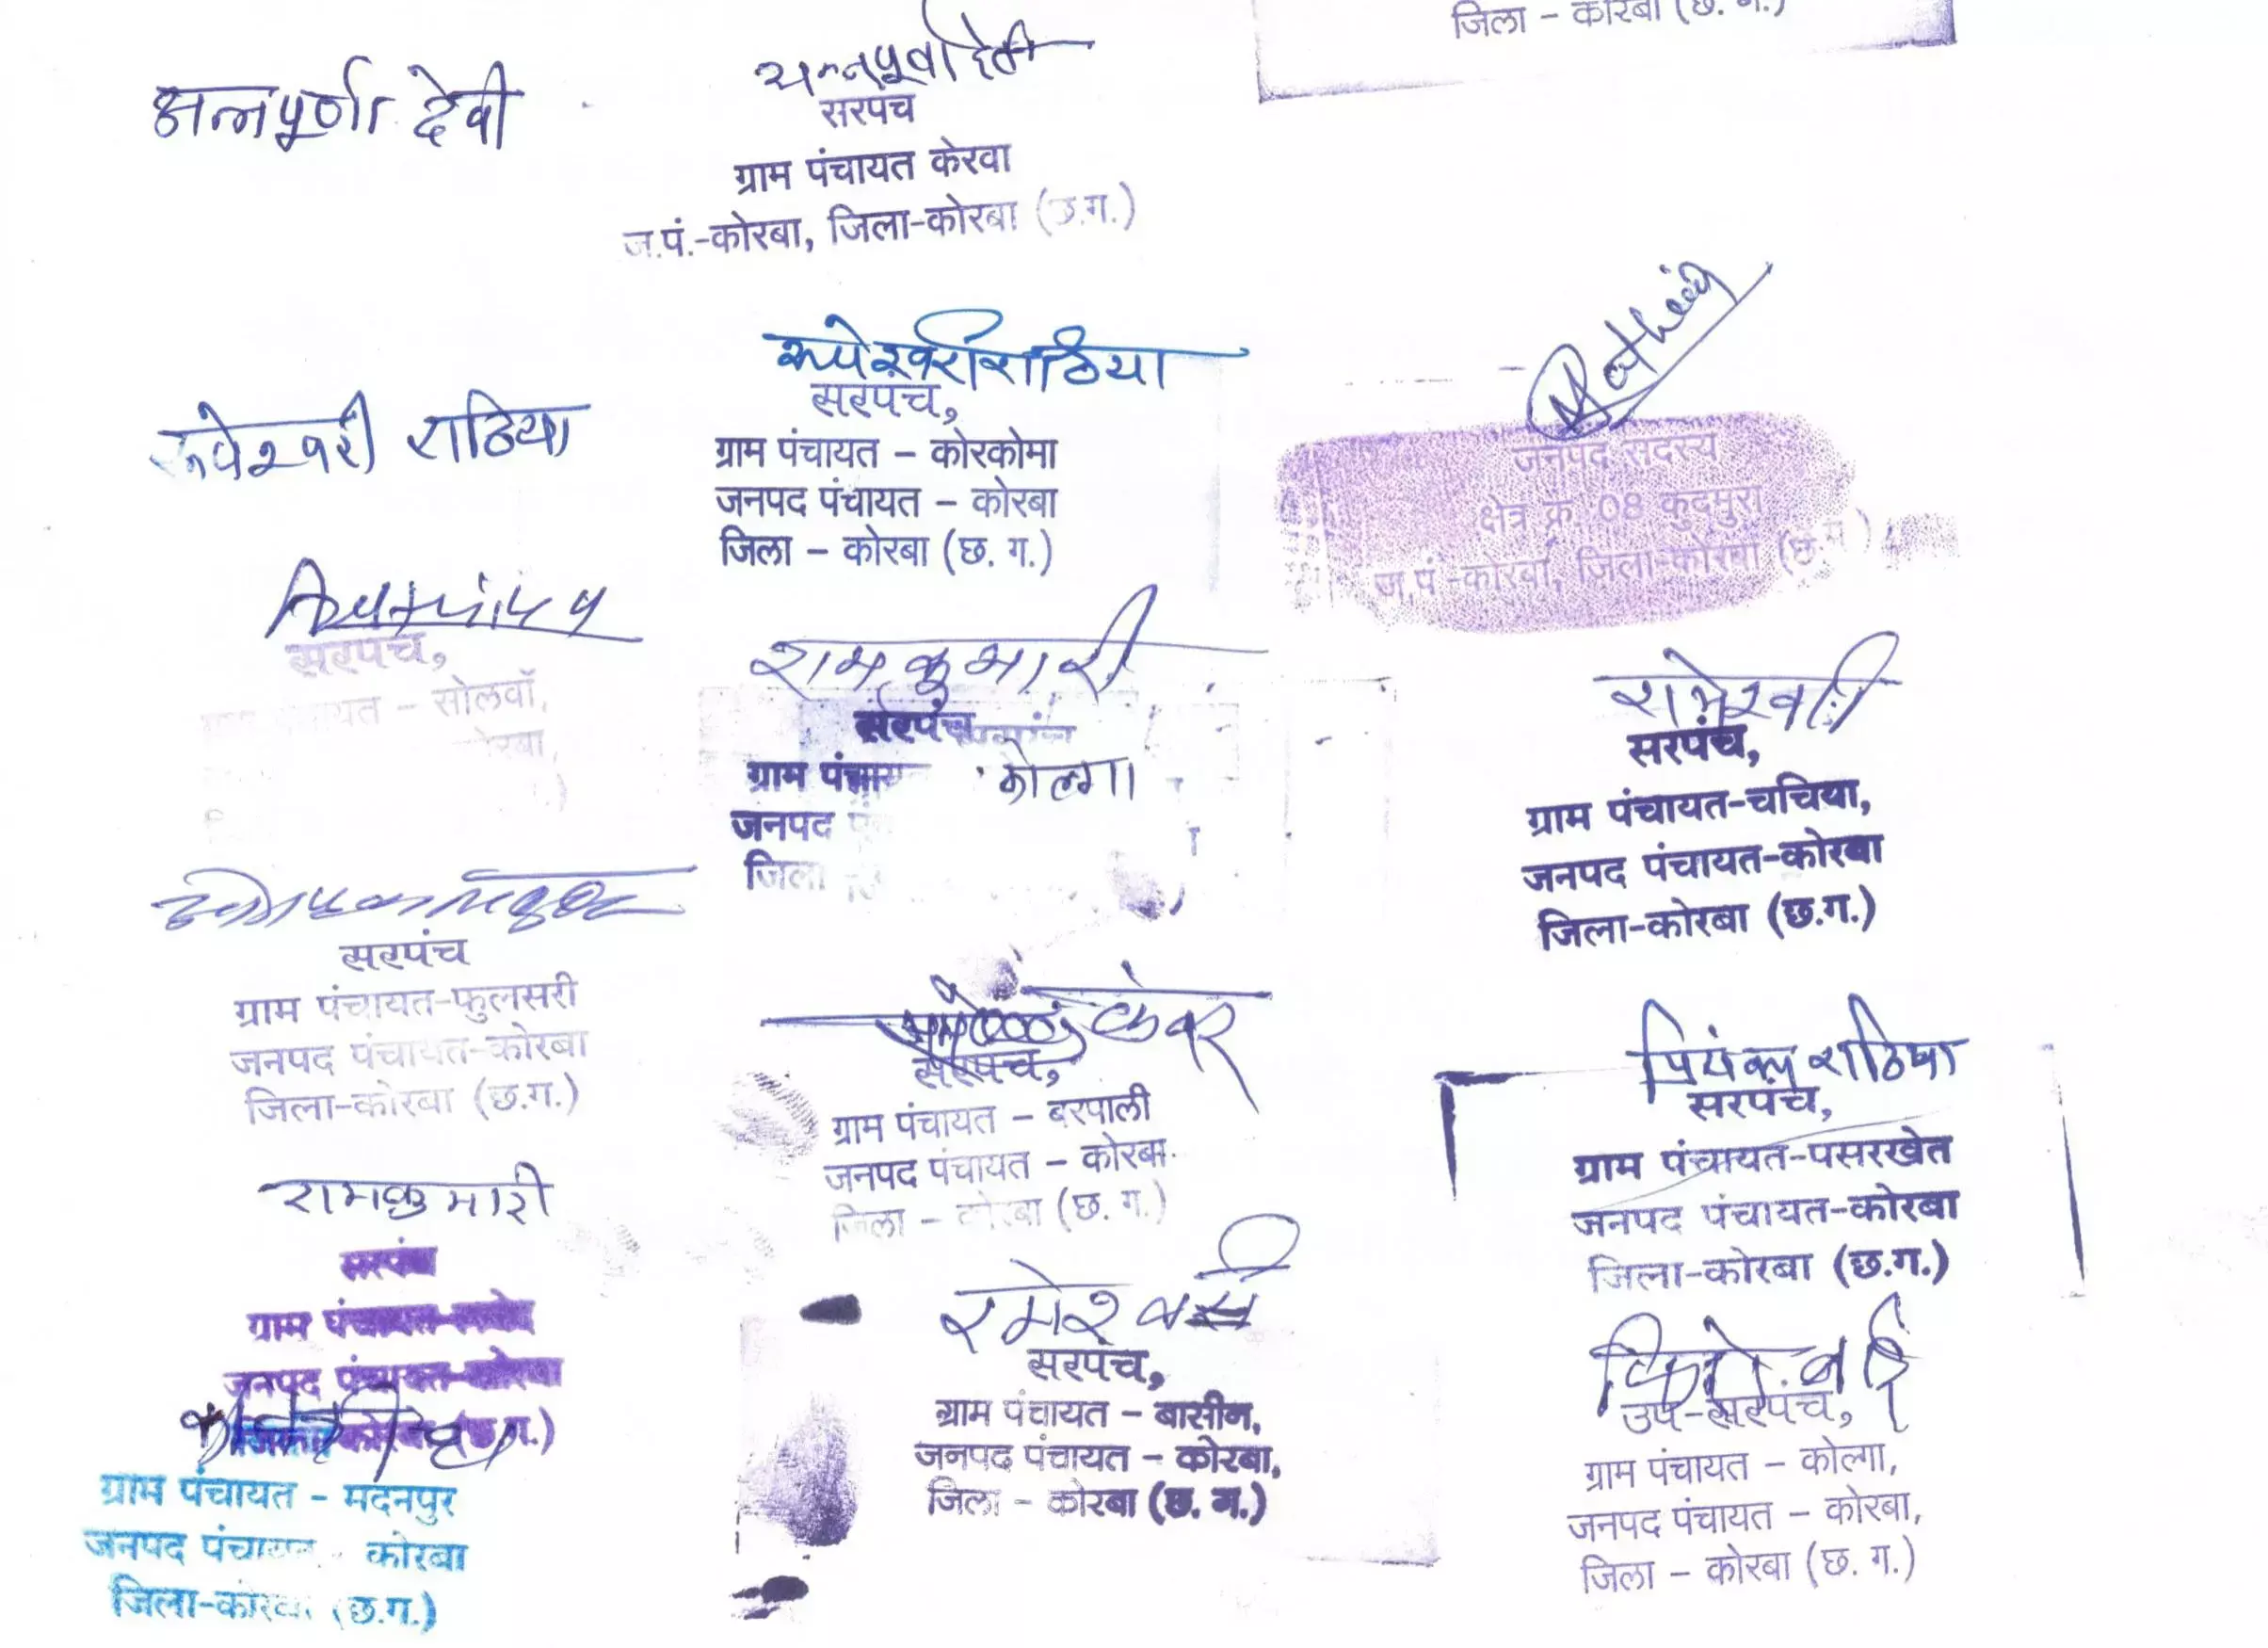 जिला – कोरबा (छ. ग.)
अन्नपूर्णा देवी
अन्नपूर्णा देवी
सरपंच
ग्राम पंचायत केरवा
ज.पं.-कोरबा, जिला-कोरबा (छ.ग.)
रूपेश्वरी राठिया
रूपेश्वरी राठिया
सरपंच,
ग्राम पंचायत – कोरकोमा
जनपद पंचायत – कोरबा
जिला – कोरबा (छ. ग.)
जनपद सदस्य
क्षेत्र क्र. 08 कुदमुरा
ज.पं.-कोरबा, जिला-कोरबा (छ.ग.)
सरपंच,
पंचायत – सोलवाँ,
कोरबा,
रामकुमारी
सरपंच
ग्राम पंचायत कोल्गा
जनपद
जिला
सरपंच,
ग्राम पंचायत-चचिया,
जनपद पंचायत-कोरबा
जिला-कोरबा (छ.ग.)
सरपंच
ग्राम पंचायत-फुलसरी
जनपद पंचायत-कोरबा
जिला-कोरबा (छ.ग.)
सरपंच,
ग्राम पंचायत – बरपाली
जनपद पंचायत – कोरबा
जिला – कोरबा (छ. ग.)
प्रियंका राठिया
सरपंच,
ग्राम पंचायत-पसरखेत
जनपद पंचायत-कोरबा
जिला-कोरबा (छ.ग.)
रामकुमारी
सरपंच
ग्राम पंचायत
जनपद पंचायत-कोरबा
(छ.ग.)
ग्राम पंचायत – मदनपुर
जनपद पंचायत – कोरबा
जिला-कोरबा (छ.ग.)
सरपंच,
ग्राम पंचायत – बासीन,
जनपद पंचायत – कोरबा,
जिला – कोरबा (छ. ग.)
उप-सरपंच,
ग्राम पंचायत – कोल्गा,
जनपद पंचायत – कोरबा,
जिला – कोरबा (छ. ग.)